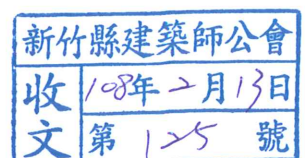 新竹縣建築師公會
收文
108年2月13日
第125號